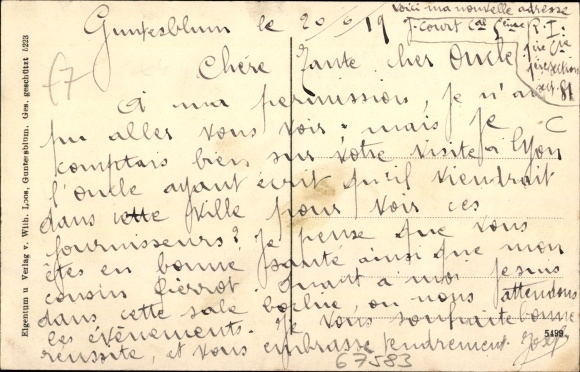 voici ma nouvelle adresse
J. Court Cal
R. I:
81
Guntersblum le 20/6/19
Chère Tante cher Oncle
A ma permission, je n'ai
pu aller vous voir; mais je
comptais bien sur votre visite à Lyon
l'Oncle ayant écrit qu'il viendrait
dans cette ville pour voir ces
fournisseurs? Je pense que vous
êtes en bonne santé ainsi que mon
cousin Pierrot. Quant à moi je suis
dans cette sale bochie, ou nous attendons
les évènements. Je vous souhaite bonne
reussite, et vous embrasse tendrement. Josef
67583
5499
Eigentum u Verlag v. Wilh. Loos, Guntersblum. Ges. geschützt 5223